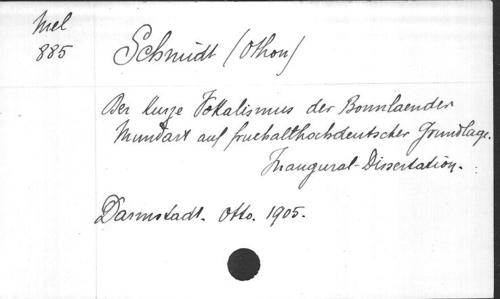 Mel
885
Schmidt (Othon)
Der kurze Vokalismus der Bonnlaender
Mundart auf fruehalthochdeutscher Grundlage.
Inaugural-Dissertation.
Darmstadt. Otto. 1905.